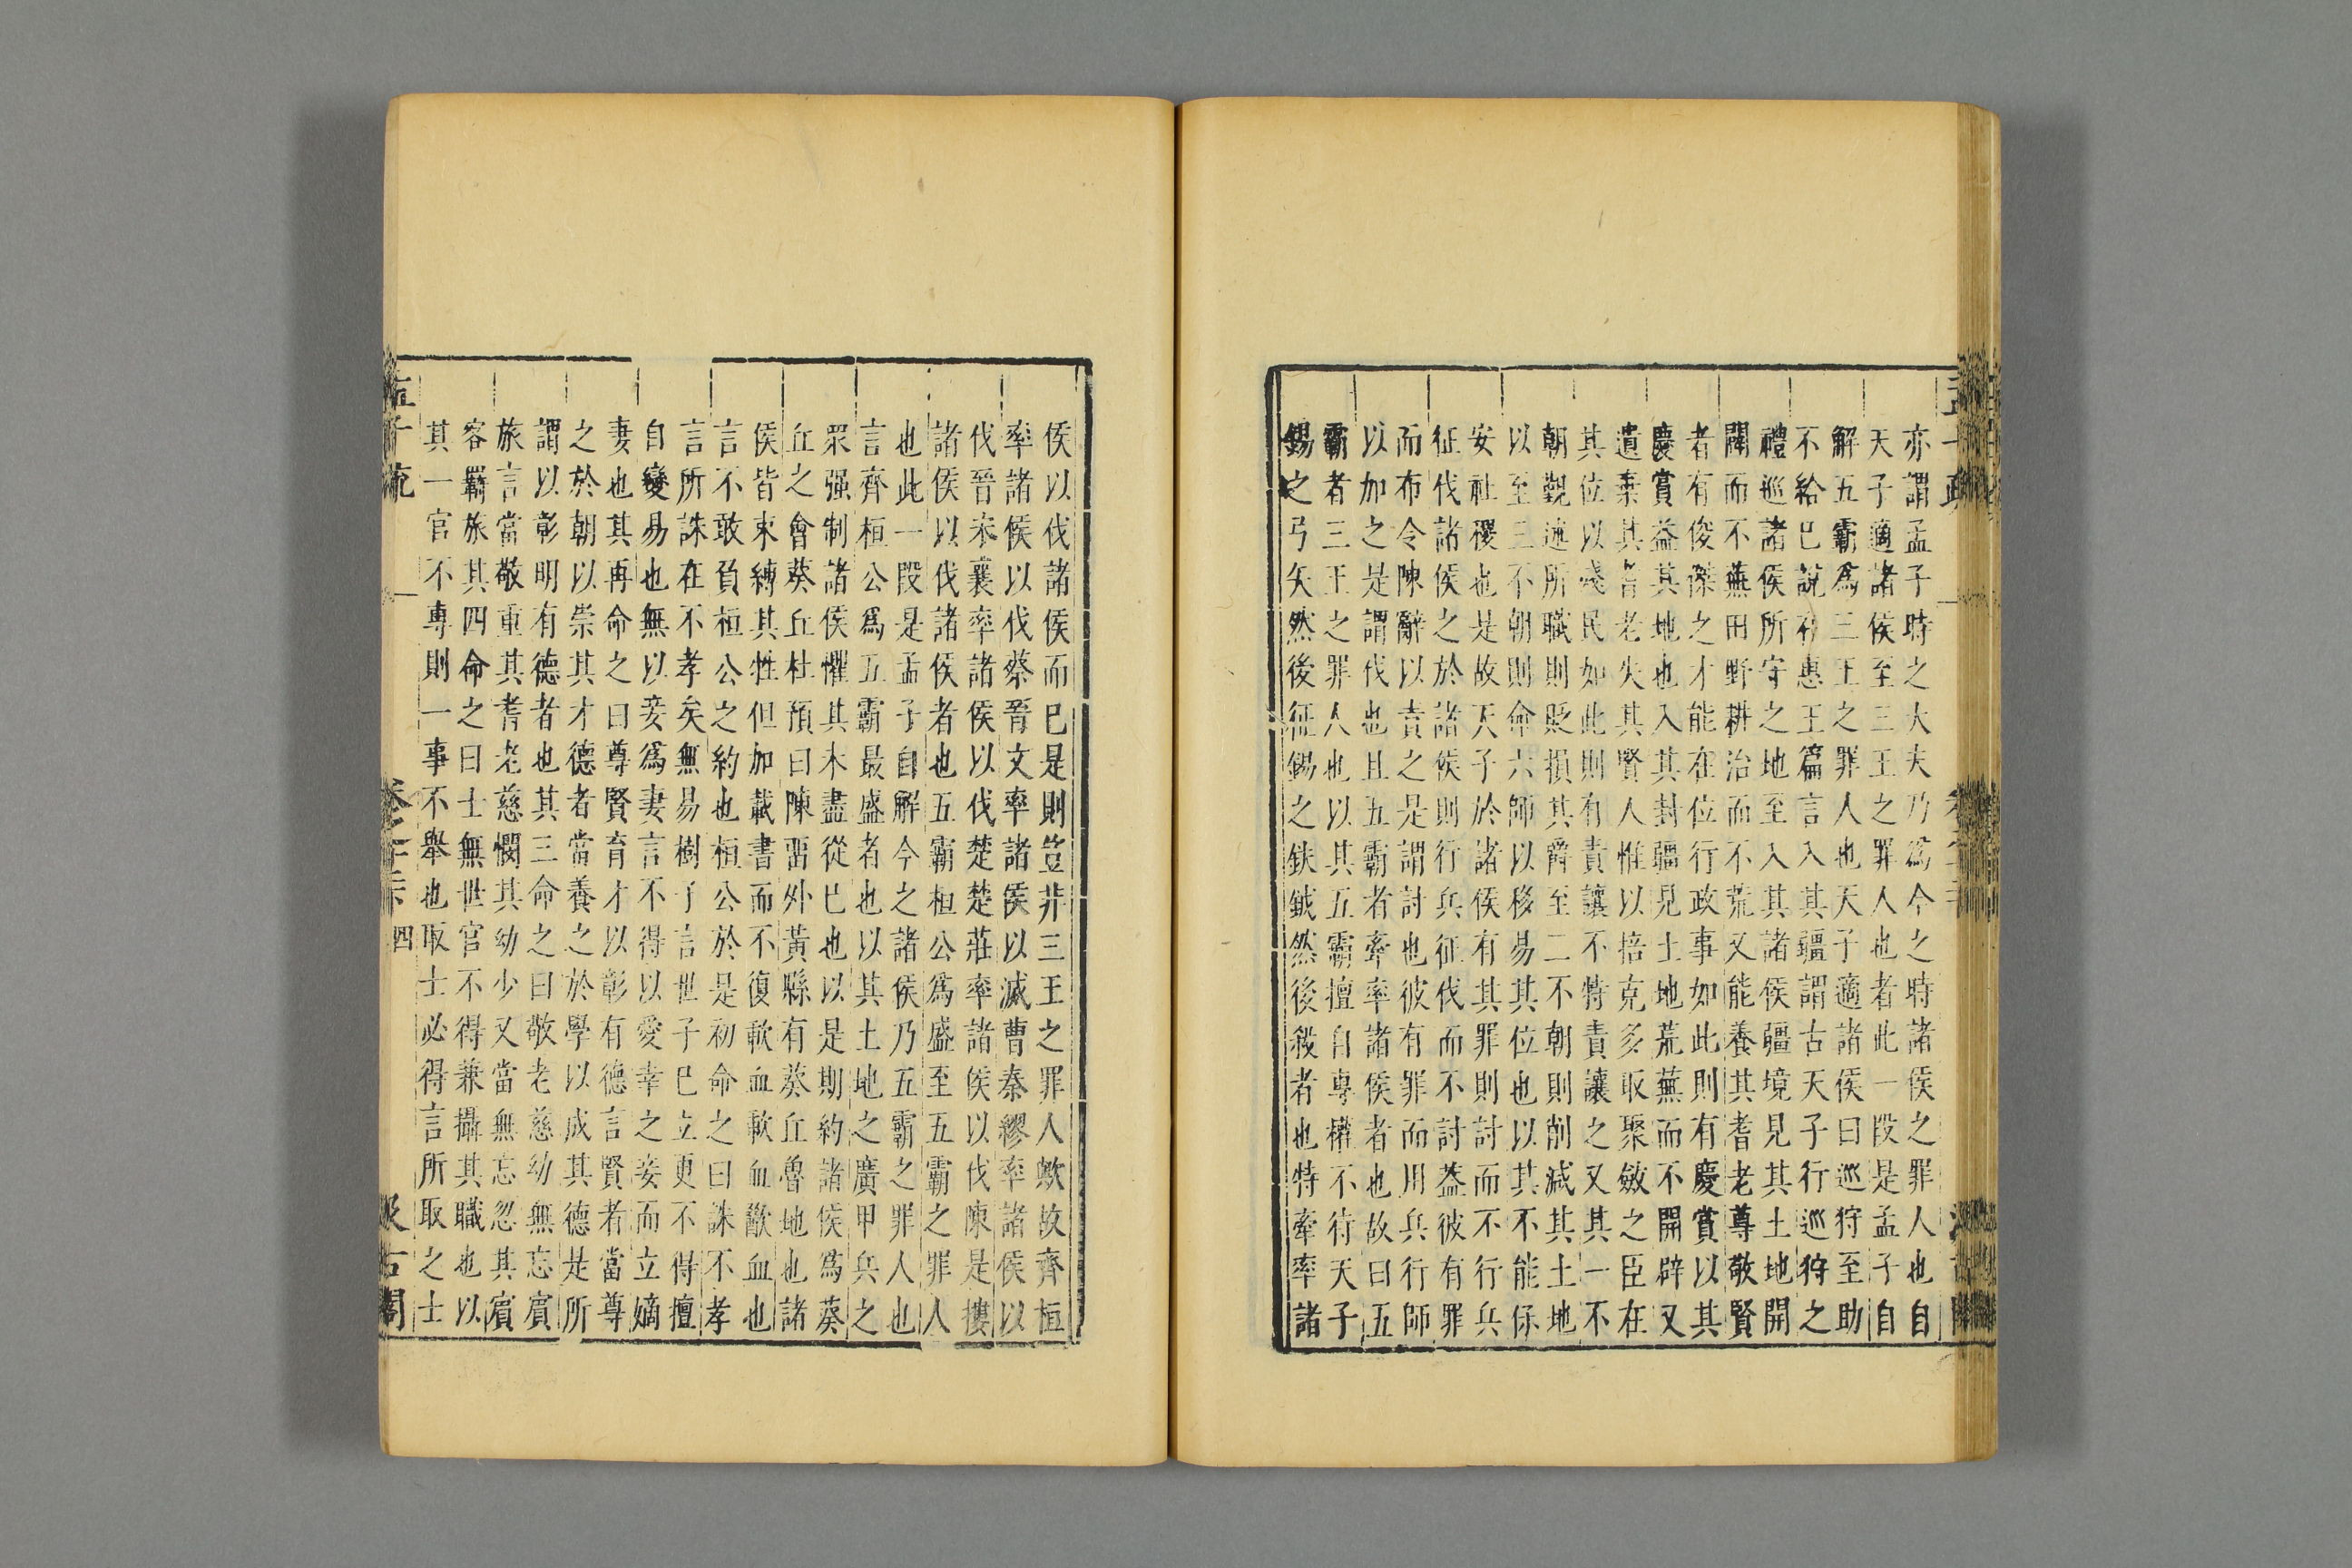 亦謂孟子時之大夫乃爲今之時諸侯之罪人也自
天子適諸侯至三王之罪人也者此一段是孟子自
解五霸爲三王之罪人也天子適諸侯曰巡狩至助
不給巳說在惠王篇言入其疆謂古天子行巡狩之
禮巡諸侯所守之地至入其諸侯疆境見其土地開
闢而不蕪田野耕治而不荒又能養其耆老尊敬賢
者有俊傑之才能在位行政事如此則有慶賞以其
慶賞益其地也入其封疆見土地荒蕪而不開辟又
遺棄其耆老失其賢人惟以掊克多取聚斂之臣在
其位以殘民如此則有責讓不特責讓之又其一不
朝覲述所職則貶損其爵至二不朝則削減其土地
以至三不朝則命六師以移易其位也以其不能保
安社稷也是故天子於諸侯有其罪則討而不行兵
征伐諸侯之於諸侯則行兵征伐而不討益彼有罪
而布令陳辭以責之是謂討也彼有罪而用兵行師
以加之是謂伐也且五霸者牽率諸侯者也故曰五
霸者三王之罪人也以其五霸擅自專權不待天子
錫之弓矢然後征錫之鈇鉞然後殺者也特牽率諸
侯以伐諸侯而巳是則豈非三王之罪人歟故齊桓
率諸侯以伐蔡晉文率諸侯以滅曹秦繆率諸侯以
伐晉宋襄率諸侯以伐楚楚莊率諸侯以伐陳是摟
諸侯以伐諸侯者也五霸桓公爲盛至五霸之罪人
也此一段是孟子自解今之諸侯乃五霸之罪人也
言齊桓公爲五霸最盛者也以其土地之廣甲兵之
衆强制諸侯懼其未盡從巳也以是期約諸侯爲葵
丘之會葵丘杜預曰陳畱外黃縣有葵丘魯地也諸
侯皆束縛其牲但加載書而不復歃血歃血歠血也
言不敢負桓公之約也桓公於是初命之曰誅不孝
言所誅在不孝矣無易樹子言世子巳立更不得擅
自變易也無以妾爲妻言不得以愛幸之妾而立嫡
妻也其再命之曰尊賢育才以彰有德言賢者當尊
之於朝以崇其才德者當養之於學以成其德是所
謂以彰明有德者也其三命之曰敬老慈幼無忘賓
旅言當敬重其耆老慈憫其幼少又當無忘忽其賓
客羇旅其四命之曰士無世官不得兼攝其職也以
其一官不專則一事不舉也取士必得言所取之士
四
汲古閣